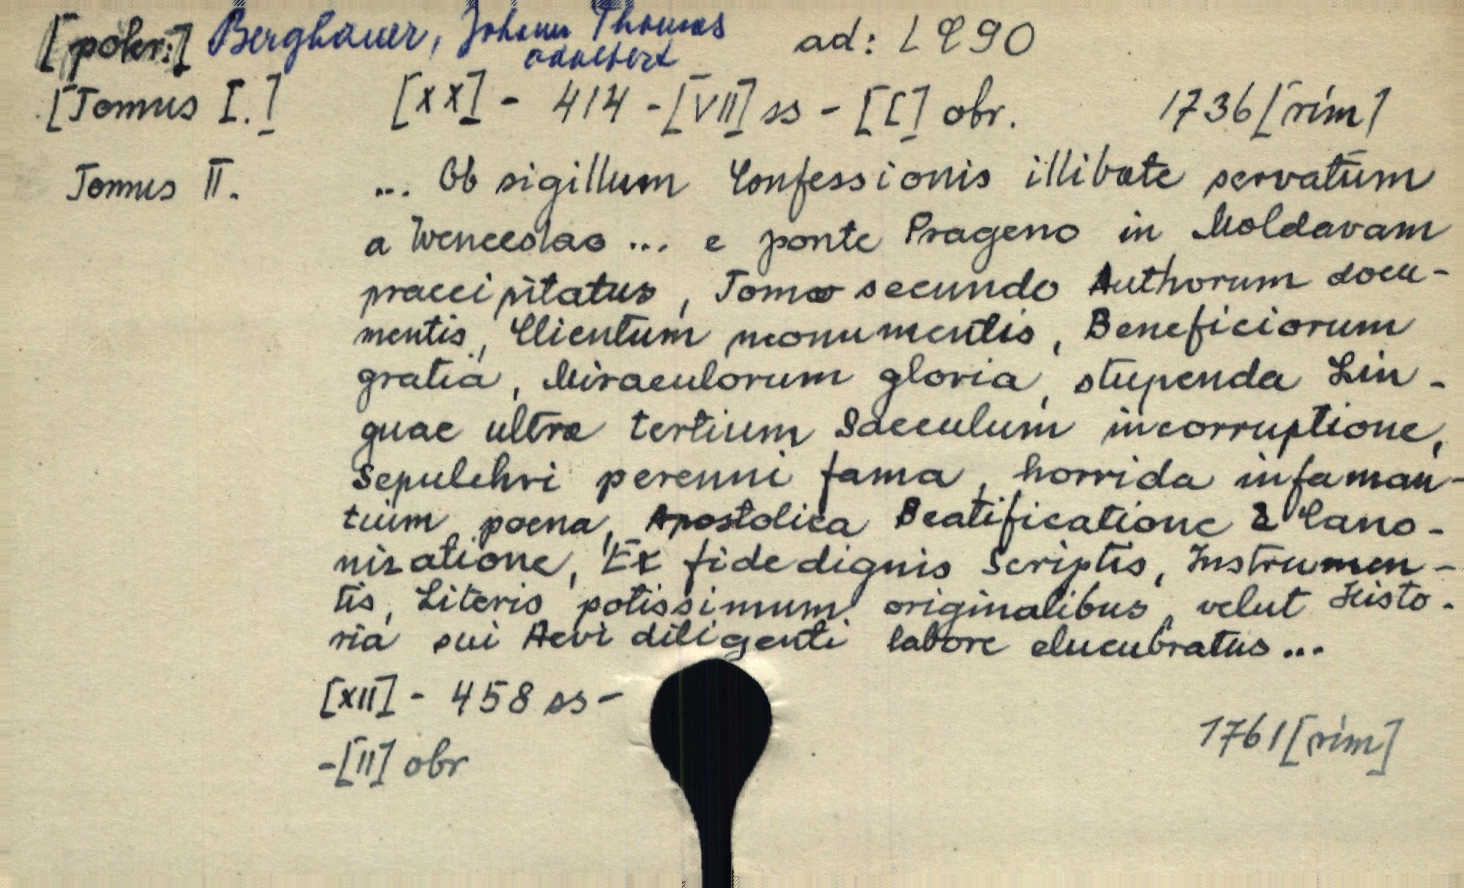 [pokr:] Berghauer, Johann Thomas
Adalbert
ad: L 890
[Tomus I.] [XX] - 414 - [VII] ss - [I] obr. 1736 [řím]
Tomus II. ... Ob sigillum Confessionis illibate servatum
a Wenceslao ... e ponte Prageno in Moldavam
praecipitatus, Tomo secundo Authorum docu-
mentis, Clientum monumentis, Beneficiorum
gratia, Miraculorum gloria, stupenda Lin-
guae ultra tertium Saeculum incorruptione,
Sepulchri perenni fama, horrida infaman-
tium poena, Apostolica Beatificatione & Cano-
nizatione, Ex fide dignis Scriptis, Instrumen-
tis, Literis potissimum originalibus, velut Histo-
ria sui Aevi diligenti labore elucubratus ...
[XII] - 458 ss -
- [II] obr 1761 [řím]